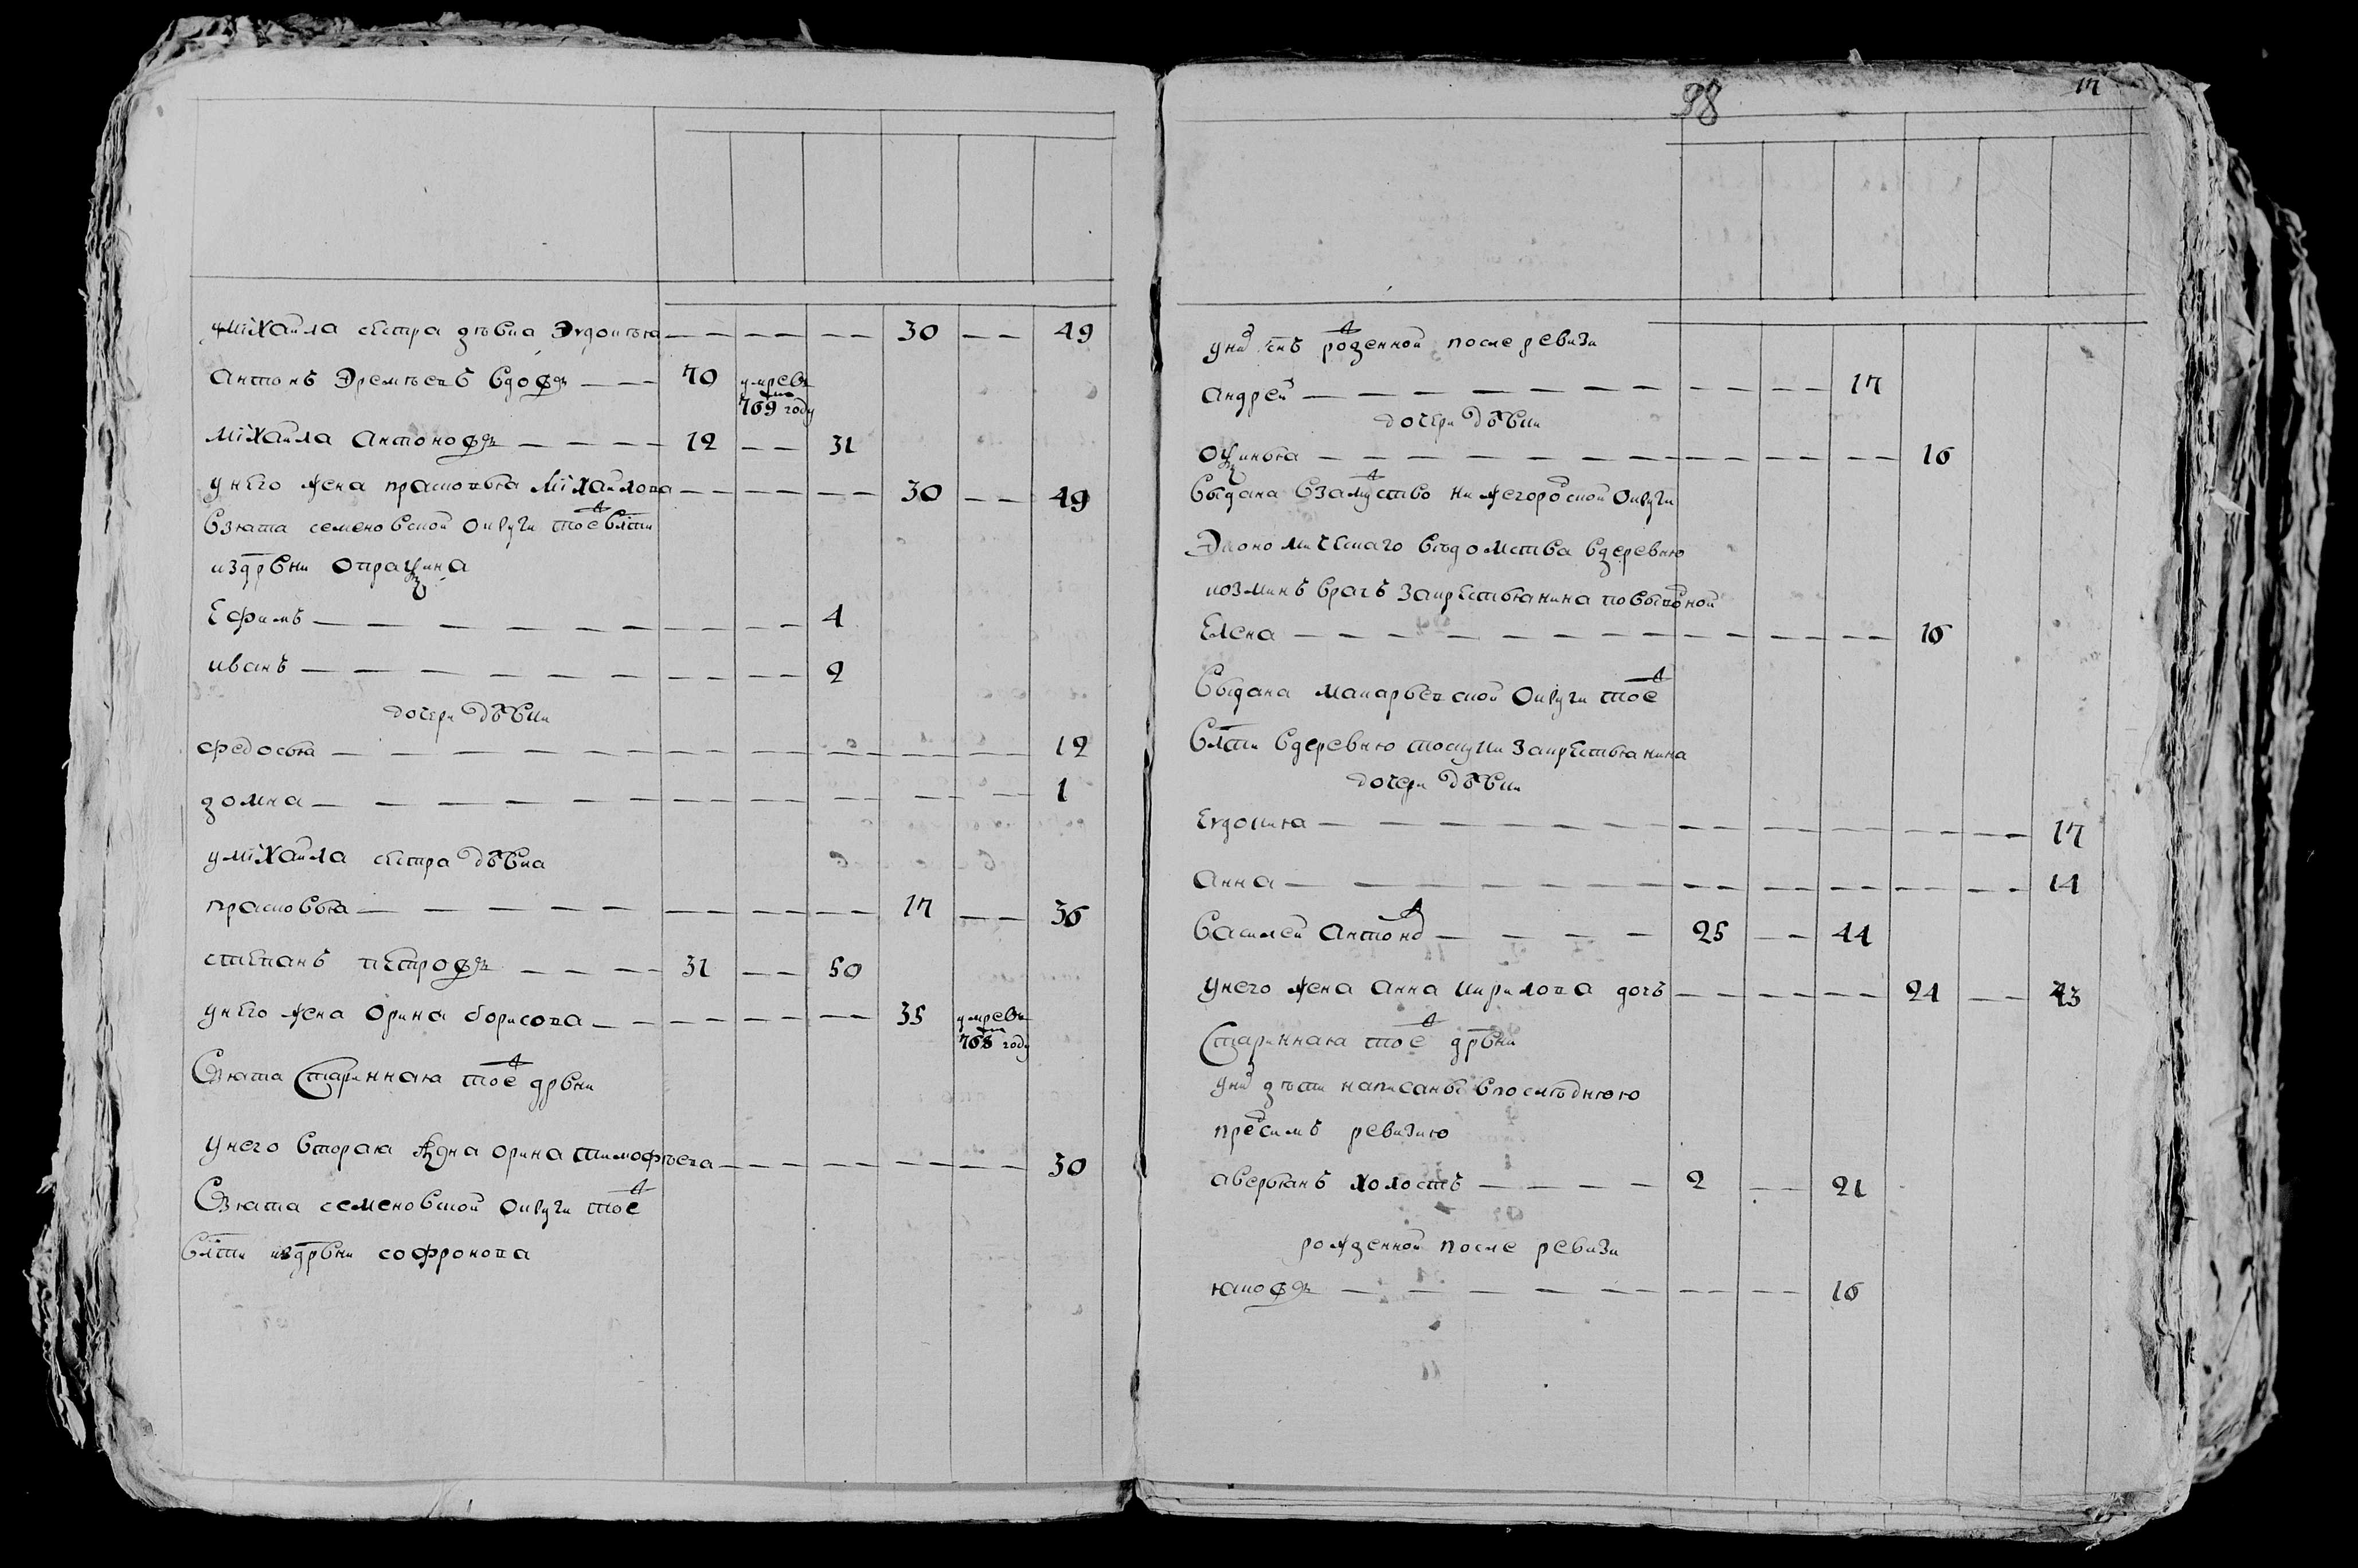 уміхаила сестра девка Эвдокѣя — — — — 30 — — 49
антонъ Эремѣевъ вдовъ — — 70 умре въ 769 году
міхаила антоновъ — — — — 12 — — 31
у него жена прасковья міхаилова — — — — 30 — — 49
взята семеновской округи тоеж влсти
издрвни
Ефимъ — — — — — — — — 4
иванъ — — — — — — — — 2
дочери дѣвки
федосья — — — — — — — — — — — 12
домна — — — — — — — — — — — 1
уміхаила сестра дѣвка
прасковья — — — — — — — — 17 — — 36
степанъ петровъ — — — 31 — — 50
у него жена орина борисова — — — — — 35 умре въ 768 году
взята старинная тоеж дрвни
у него вторая жена орина тимофѣева — — — — — — — 30
взята семеновской округи тоеж
влсти издрвни софронова
98
17
уних снъ рожденной после ревизи
андреи — — — — — — — — — 17
дочери дѣвки
— — — — — — — — — — 16
выдана взамужство нижегородской округи
Экономическаго вѣдомства вдеревню
козминъ врагъ закрестьянина повыводной
Елена — — — — — — — — — — 16
выдана макарьевской округи тоеж
влсти вдеревню закрестьянина
дочери дѣвки
Евдокия — — — — — — — — — — — 17
анна — — — — — — — — — — — 14
василеи антонов — — — — 25 — — 44
унего жена анна кирилова дочь — — — — 24 — — 43
старинная тоеж дрвни
уних дѣти написаны впоследнюю
предсимъ ревизию
аверьянъ холостъ — — — — 2 — — 21
рожденной после ревизи
яковъ — — — — — — — — 16